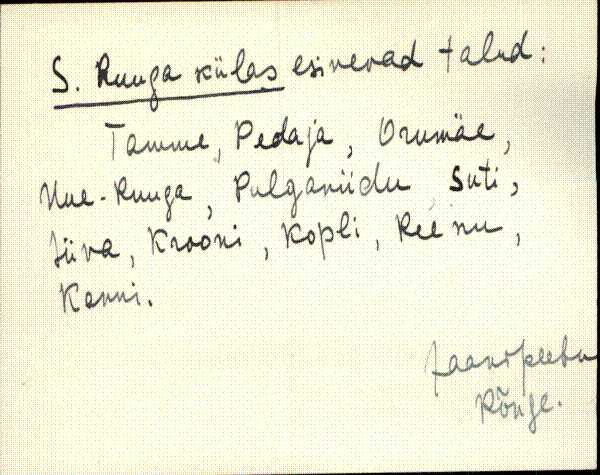 S. Ruuga külas esinevad talud:
Tamme, Pedaja, Orumäe,
Uue-Ruuga, Pulganiidu Suti,
Jüva, Krooni, Kopli, Reenu,
Kanni.
Jaanipeebu
Rõuge.